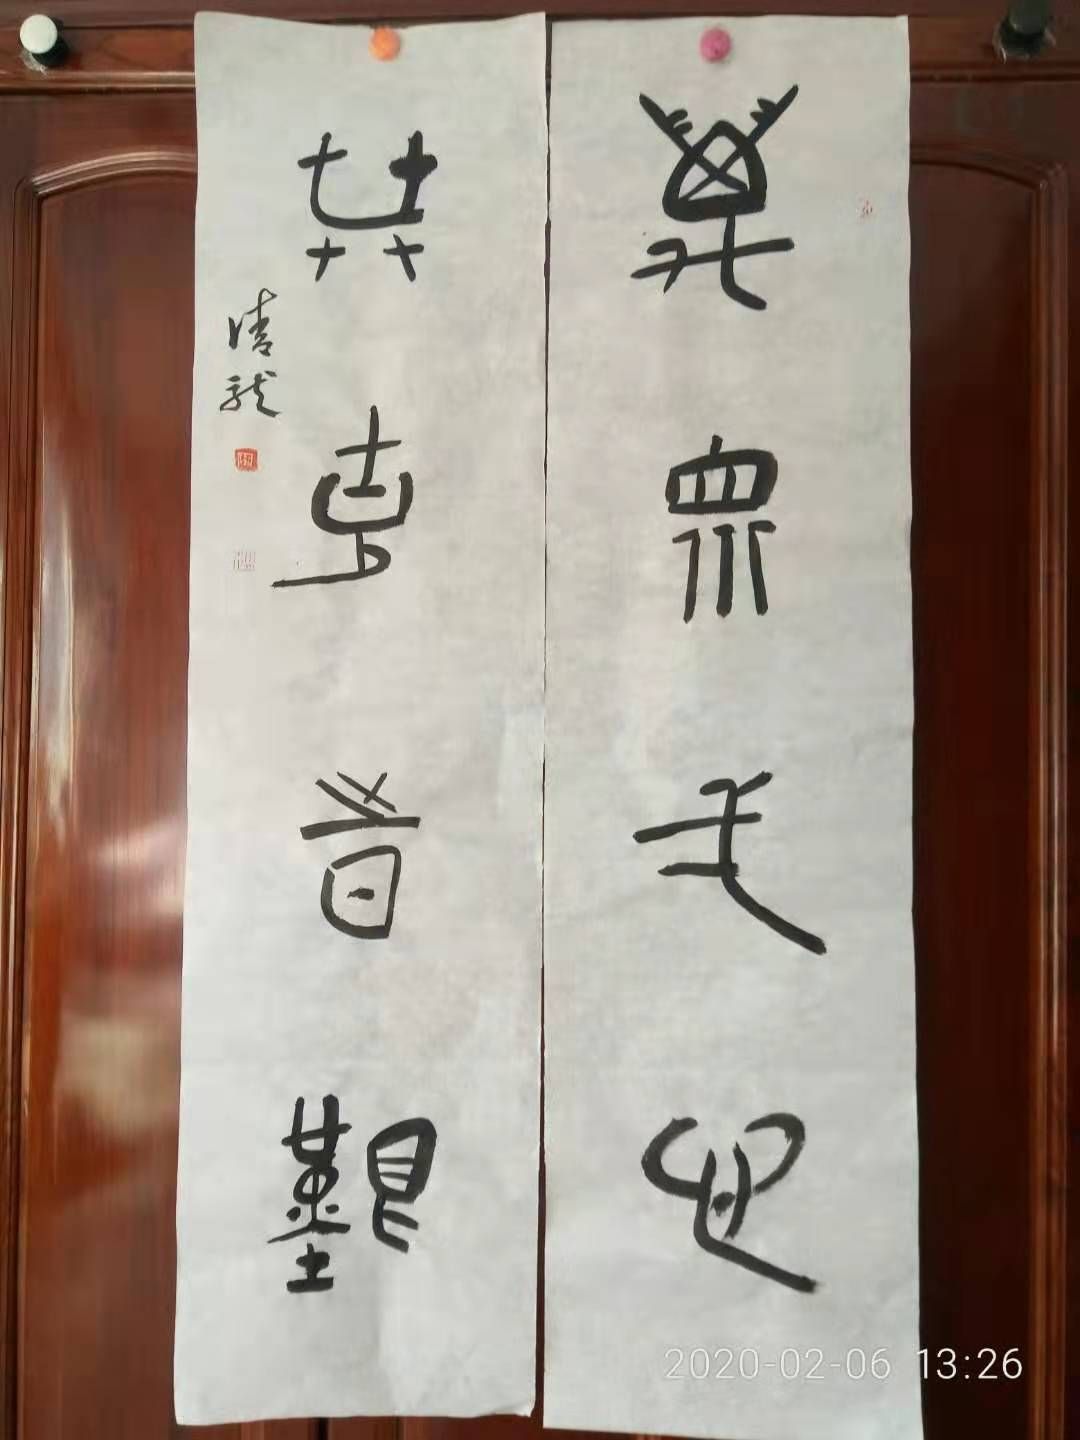 萬眾弌心
共克旹艱
清龍
2020-02-06 13:26